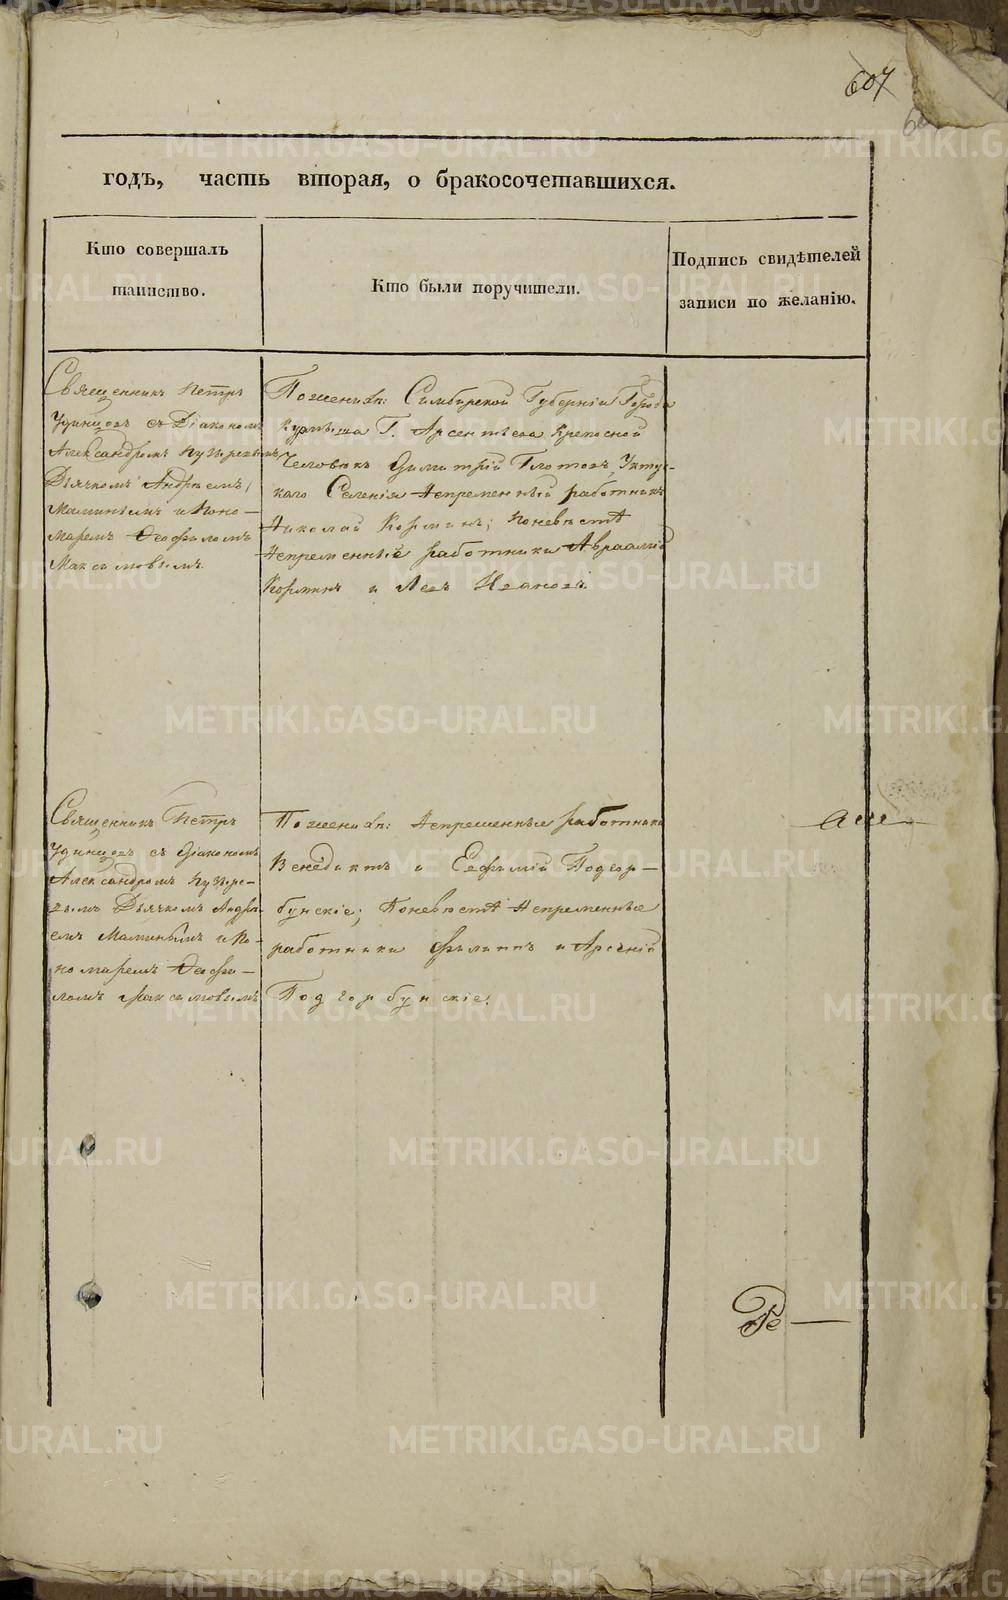 607
годъ, часть вторая, о бракосочетавшихся.
Кто совершалъ
таинство.
Кто были поручители.
Подпись свидѣтелей
записи по желанію.
Священникъ Петръ
Удинцовъ съ Діакономъ
Александромъ
Дьячкомъ Андреемъ
Маминымъ и Поно-
маремъ Ѳеофиломъ
Максимовымъ
По женихѣ: Симбирской Губерніи Города
Курмыша Г. Арсентьева Крепосной
Человѣкъ Димитрій Глотовъ, Уктус-
каго Селенія Непременный работникъ
Николай Корминъ; Поневѣстѣ
Непременные работники Авраамій
Корминъ и Левъ Ивановъ.
Священникъ Петръ
Удинцовъ съ Діакономъ
Александромъ
Дьячкомъ Андре-
емъ Маминымъ и По-
номаремъ Ѳеофи-
ломъ Максимовымъ
По женихѣ: Непременные работники
Венедиктъ и Евфимій Подгор-
бунскіе; Поневѣстѣ Непременные
работники Филиппъ и Арсеній
Подгорбунскіе.
METRIKI.GASO-URAL.RU